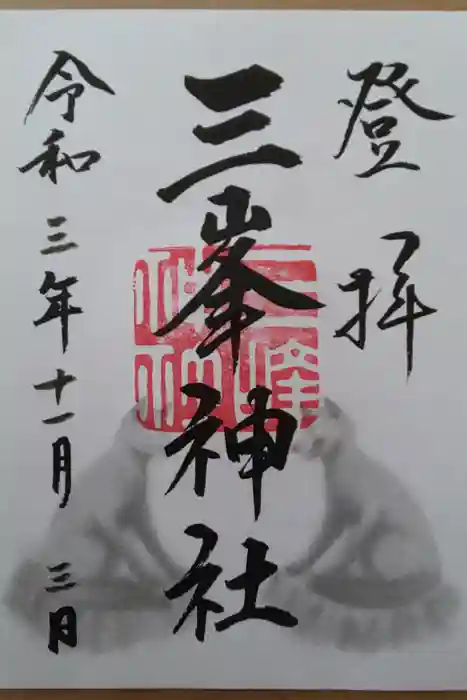 登拝
三峯神社
令和三年十一月三日